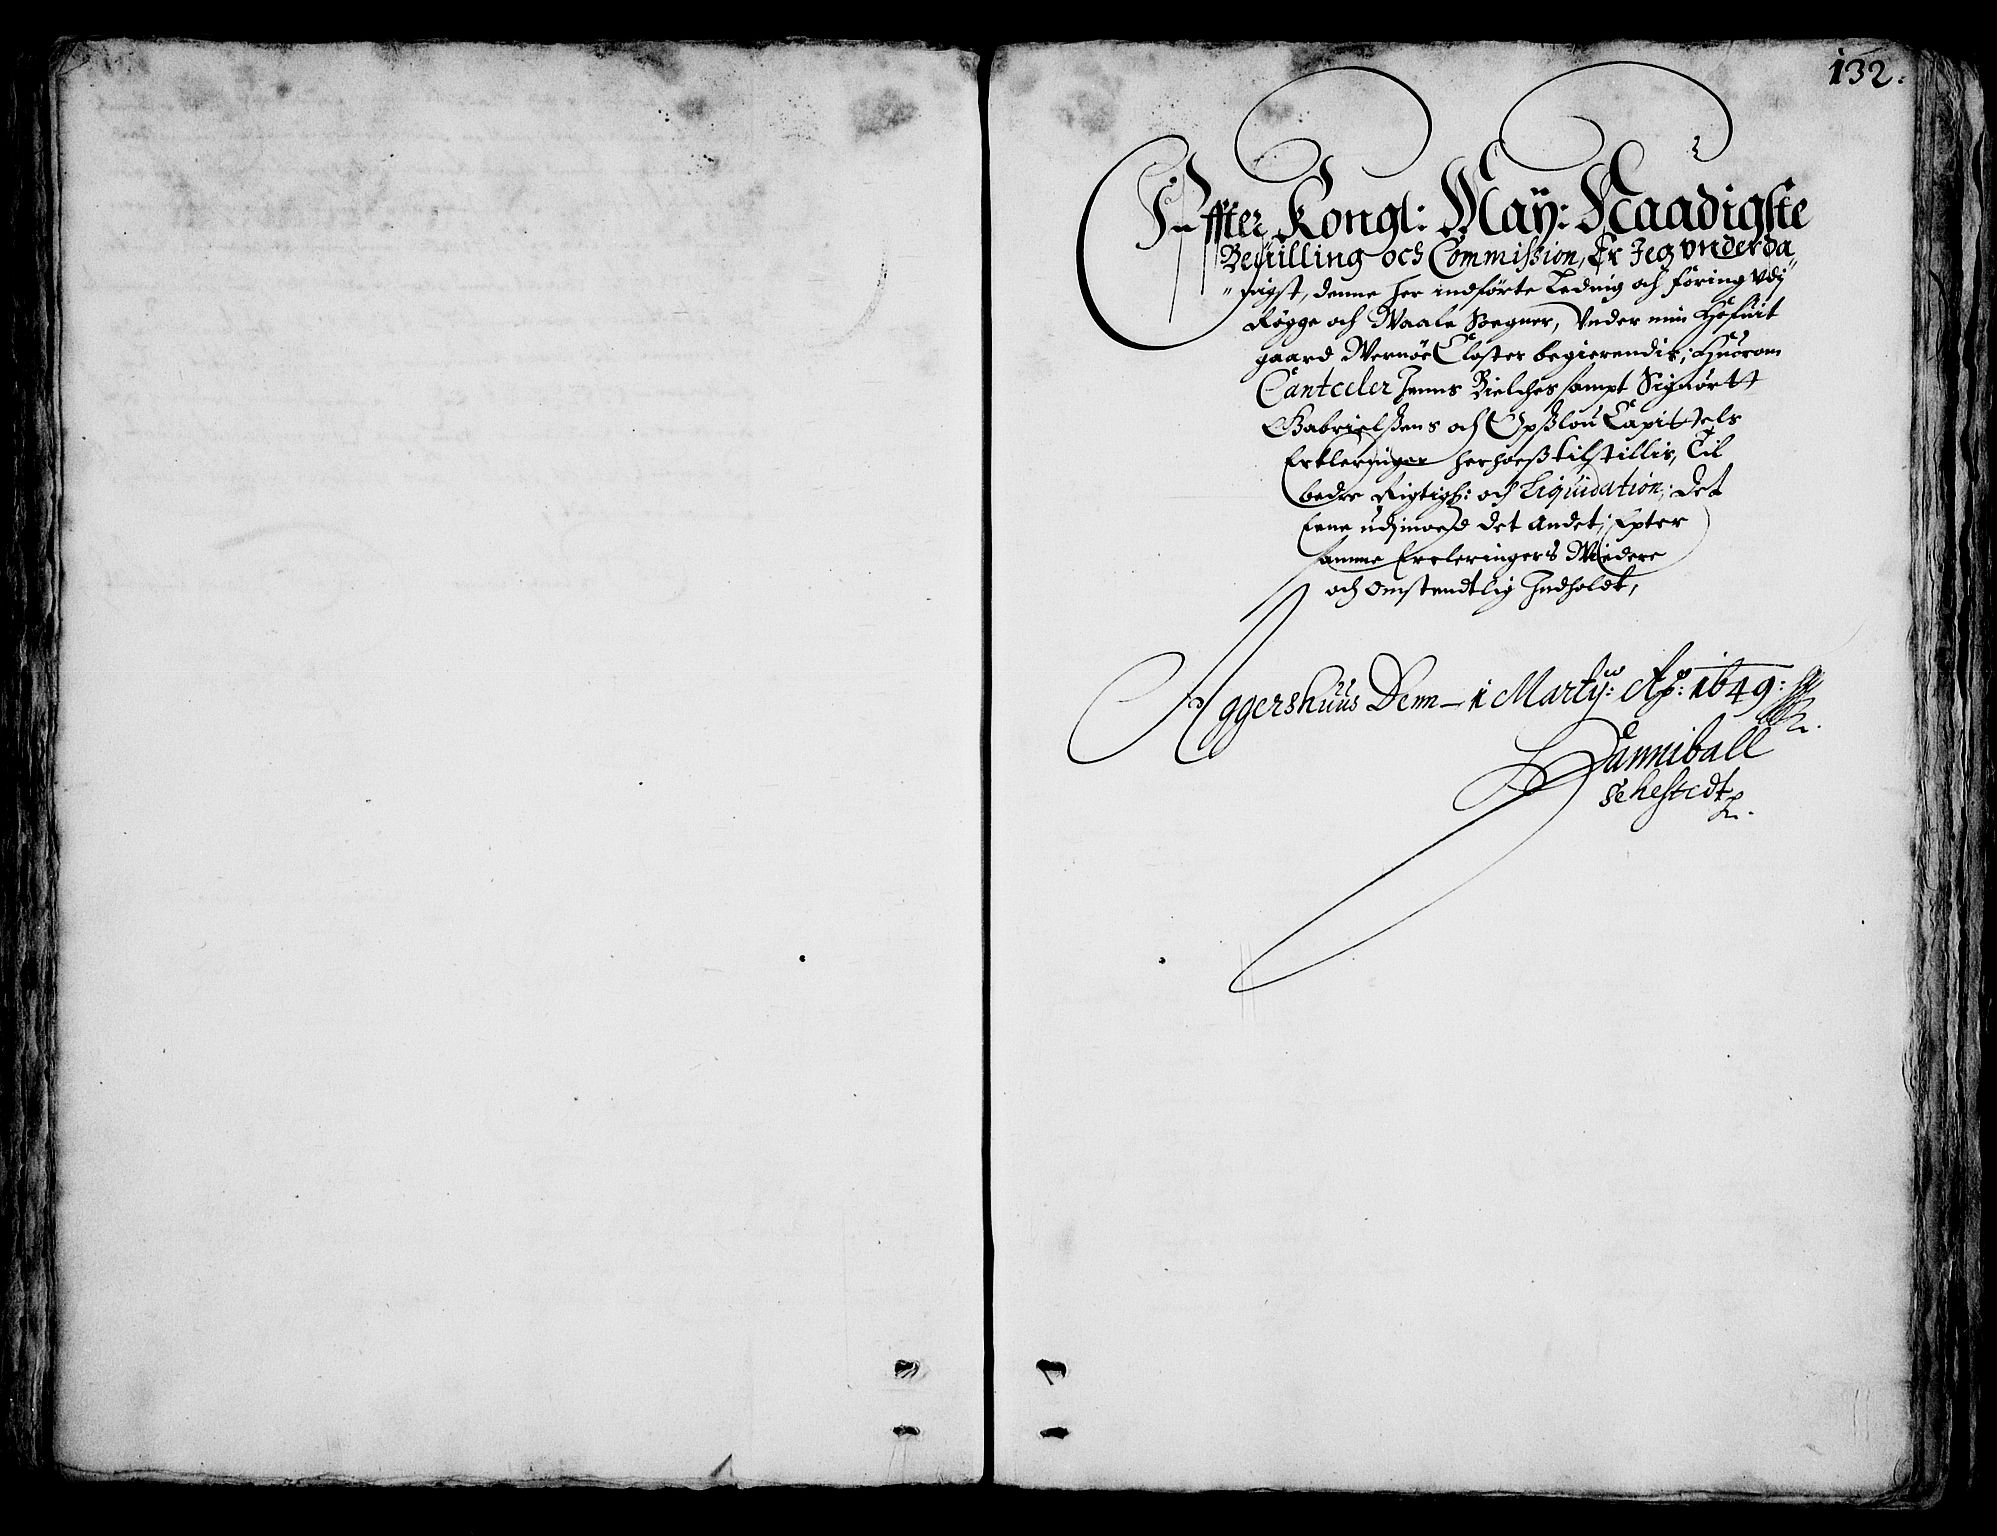 132.
Effter Kongl: May: Naadigste
Beuilling och Commission, Er Jeg vnderda
"nigst, denne her indførte Leding och föring vdi"
Rögge och Waale Sogner, Vnder min Hofuit
gaard Wernöe Closter begierendis; Huorom
Cantceler Jenns Bielches sampt Signor
Gabrielßens och Opßlou Capittels
Erkleringer herhoeß tilstillis, Til
bedre Rigtigh: och Liquidation; det
Eene udj moed det Andet; Epter
samme Erkleringers Widere
och omstendtlig Indholdt,
Aggershuus Denn 1 Martij: Ao: 1649:
Hanniball
Sehestedt